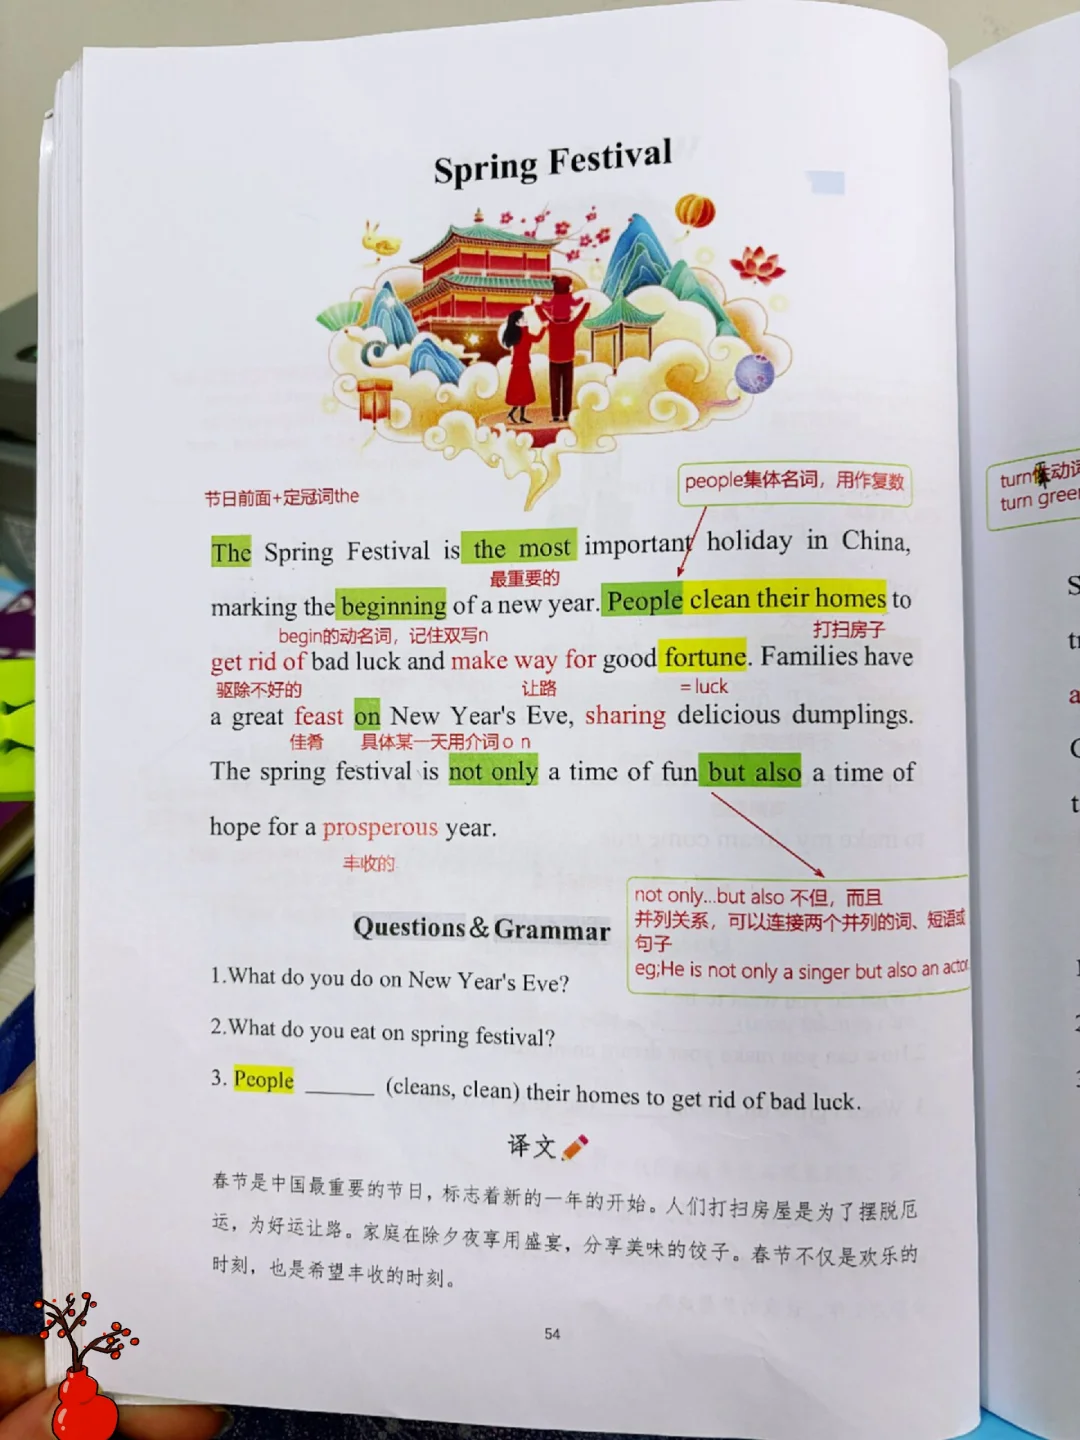 Spring Festival
people集体名词，用作复数
节日前面+定冠词the
The Spring Festival is the most important holiday in China,
最重要的
marking the beginning of a new year. People clean their homes to
begin的动名词，记住双写n
打扫房子
get rid of bad luck and make way for good fortune. Families have
驱除不好的
让路
=luck
a great feast on New Year's Eve, sharing delicious dumplings.
佳肴
具体某一天用介词on
The spring festival is not only a time of fun but also a time of
hope for a prosperous year.
丰收的
not only...but also 不但，而且
并列关系，可以连接两个并列的词、短语或
句子
eg;He is not only a singer but also an actor
Questions&Grammar
1.What do you do on New Year's Eve?
2.What do you eat on spring festival?
3. People ______ (cleans, clean) their homes to get rid of bad luck.
译文
春节是中国最重要的节日，标志着新的一年的开始。人们打扫房屋是为了摆脱厄
运，为好运让路。家庭在除夕夜享用盛宴，分享美味的饺子。春节不仅是欢乐的
时刻，也是希望丰收的时刻。
54
turn
动词
turn green